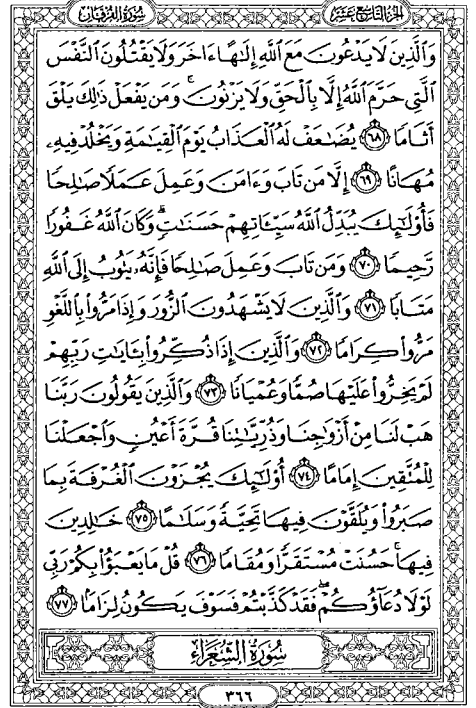 الجزء التاسع عشر
سورة الفرقان
وَالَّذِينَ لَا يَدْعُونَ مَعَ اللَّهِ إِلَٰهًا ءَاخَرَ وَلَا يَقْتُلُونَ النَّفْسَ
الَّتِي حَرَّمَ اللَّهُ إِلَّا بِالْحَقِّ وَلَا يَزْنُونَ ۚ وَمَن يَفْعَلْ ذَٰلِكَ يَلْقَ
أَثَامًا ٦٨ يُضَٰعَفْ لَهُ الْعَذَابُ يَوْمَ الْقِيَٰمَةِ وَيَخْلُدْ فِيهِۦ
مُهَانًا ٦٩ إِلَّا مَن تَابَ وَءَامَنَ وَعَمِلَ عَمَلًا صَٰلِحًا
فَأُوْلَٰٓئِكَ يُبَدِّلُ اللَّهُ سَيِّـَٔاتِهِمْ حَسَنَٰتٍ ۗ وَكَانَ اللَّهُ غَفُورًا
رَّحِيمًا ٧٠ وَمَن تَابَ وَعَمِلَ صَٰلِحًا فَإِنَّهُۥ يَتُوبُ إِلَى اللَّهِ
مَتَابًا ٧١ وَالَّذِينَ لَا يَشْهَدُونَ الزُّورَ وَإِذَا مَرُّوا۟ بِاللَّغْوِ
مَرُّوا۟ كِرَامًا ٧٢ وَالَّذِينَ إِذَا ذُكِّرُوا۟ بِـَٔايَٰتِ رَبِّهِمْ
لَمْ يَخِرُّوا۟ عَلَيْهَا صُمًّا وَعُمْيَانًا ٧٣ وَالَّذِينَ يَقُولُونَ رَبَّنَا
هَبْ لَنَا مِنْ أَزْوَٰجِنَا وَذُرِّيَّٰتِنَا قُرَّةَ أَعْيُنٍ وَاجْعَلْنَا
لِلْمُتَّقِينَ إِمَامًا ٧٤ أُوْلَٰٓئِكَ يُجْزَوْنَ الْغُرْفَةَ بِمَا
صَبَرُوا۟ وَيُلَقَّوْنَ فِيهَا تَحِيَّةً وَسَلَٰمًا ٧٥ خَٰلِدِينَ
فِيهَا ۚ حَسُنَتْ مُسْتَقَرًّا وَمُقَامًا ٧٦ قُلْ مَا يَعْبَؤُا۟ بِكُمْ رَبِّي
لَوْلَا دُعَآؤُكُمْ ۖ فَقَدْ كَذَّبْتُمْ فَسَوْفَ يَكُونُ لِزَامًا ٧٧
سُورَةُ الشُّعَرَاءِ
٣٦٦